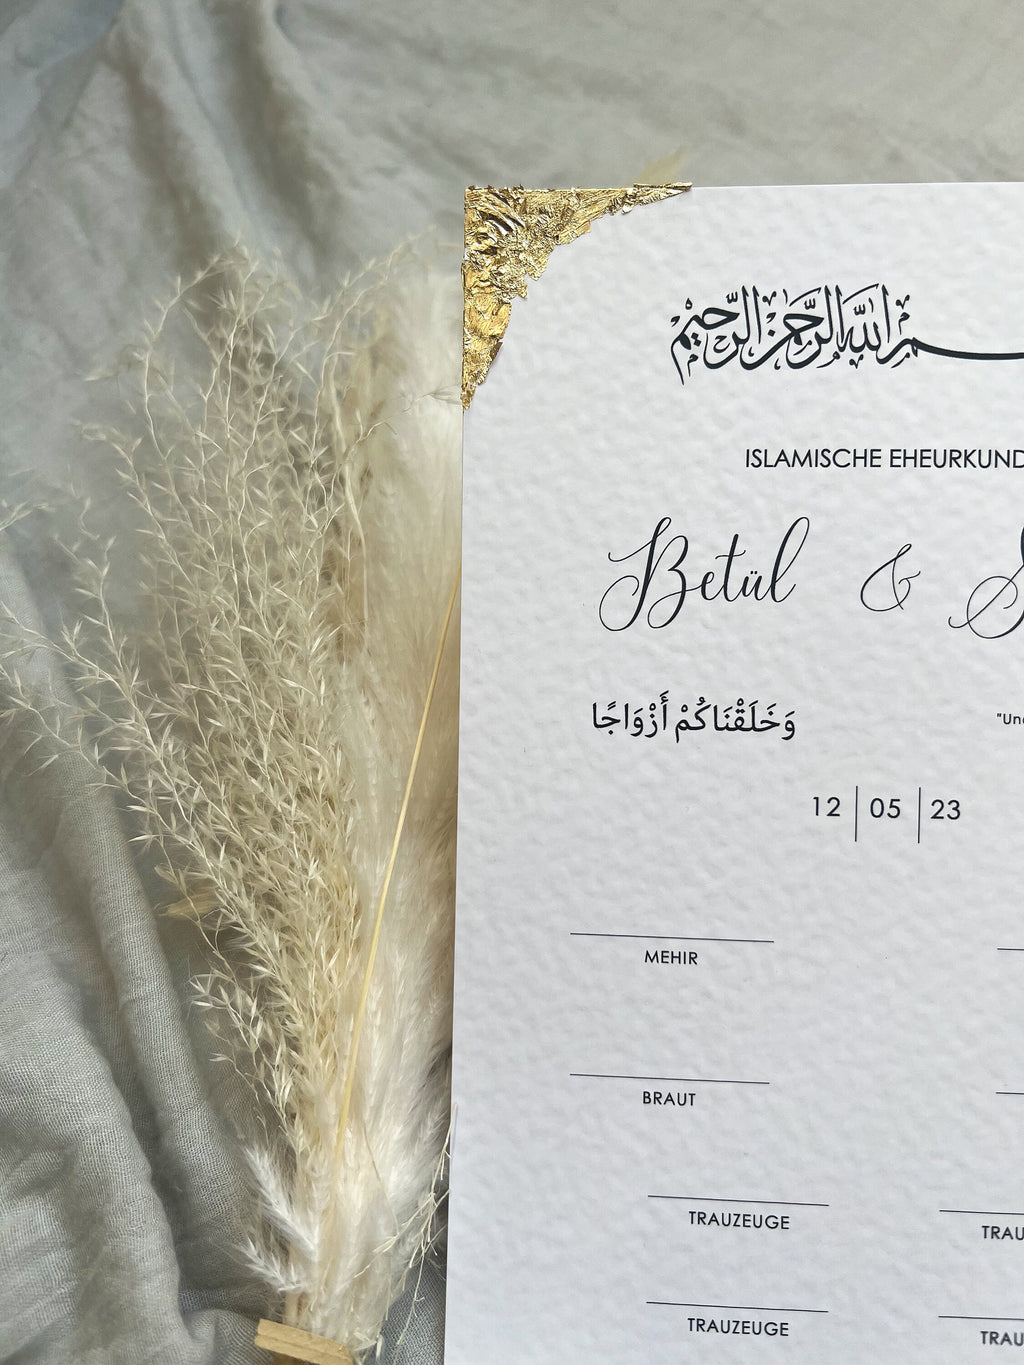 بسم الله الرحمن الرحيم
ISLAMISCHE EHEURKUND
Betül & S
وَخَلَقْنَاكُمْ أَزْوَاجًا
"Und
12 | 05 | 23
MEHIR
BRAUT
TRAUZEUGE TRAU
TRAUZEUGE TRAU